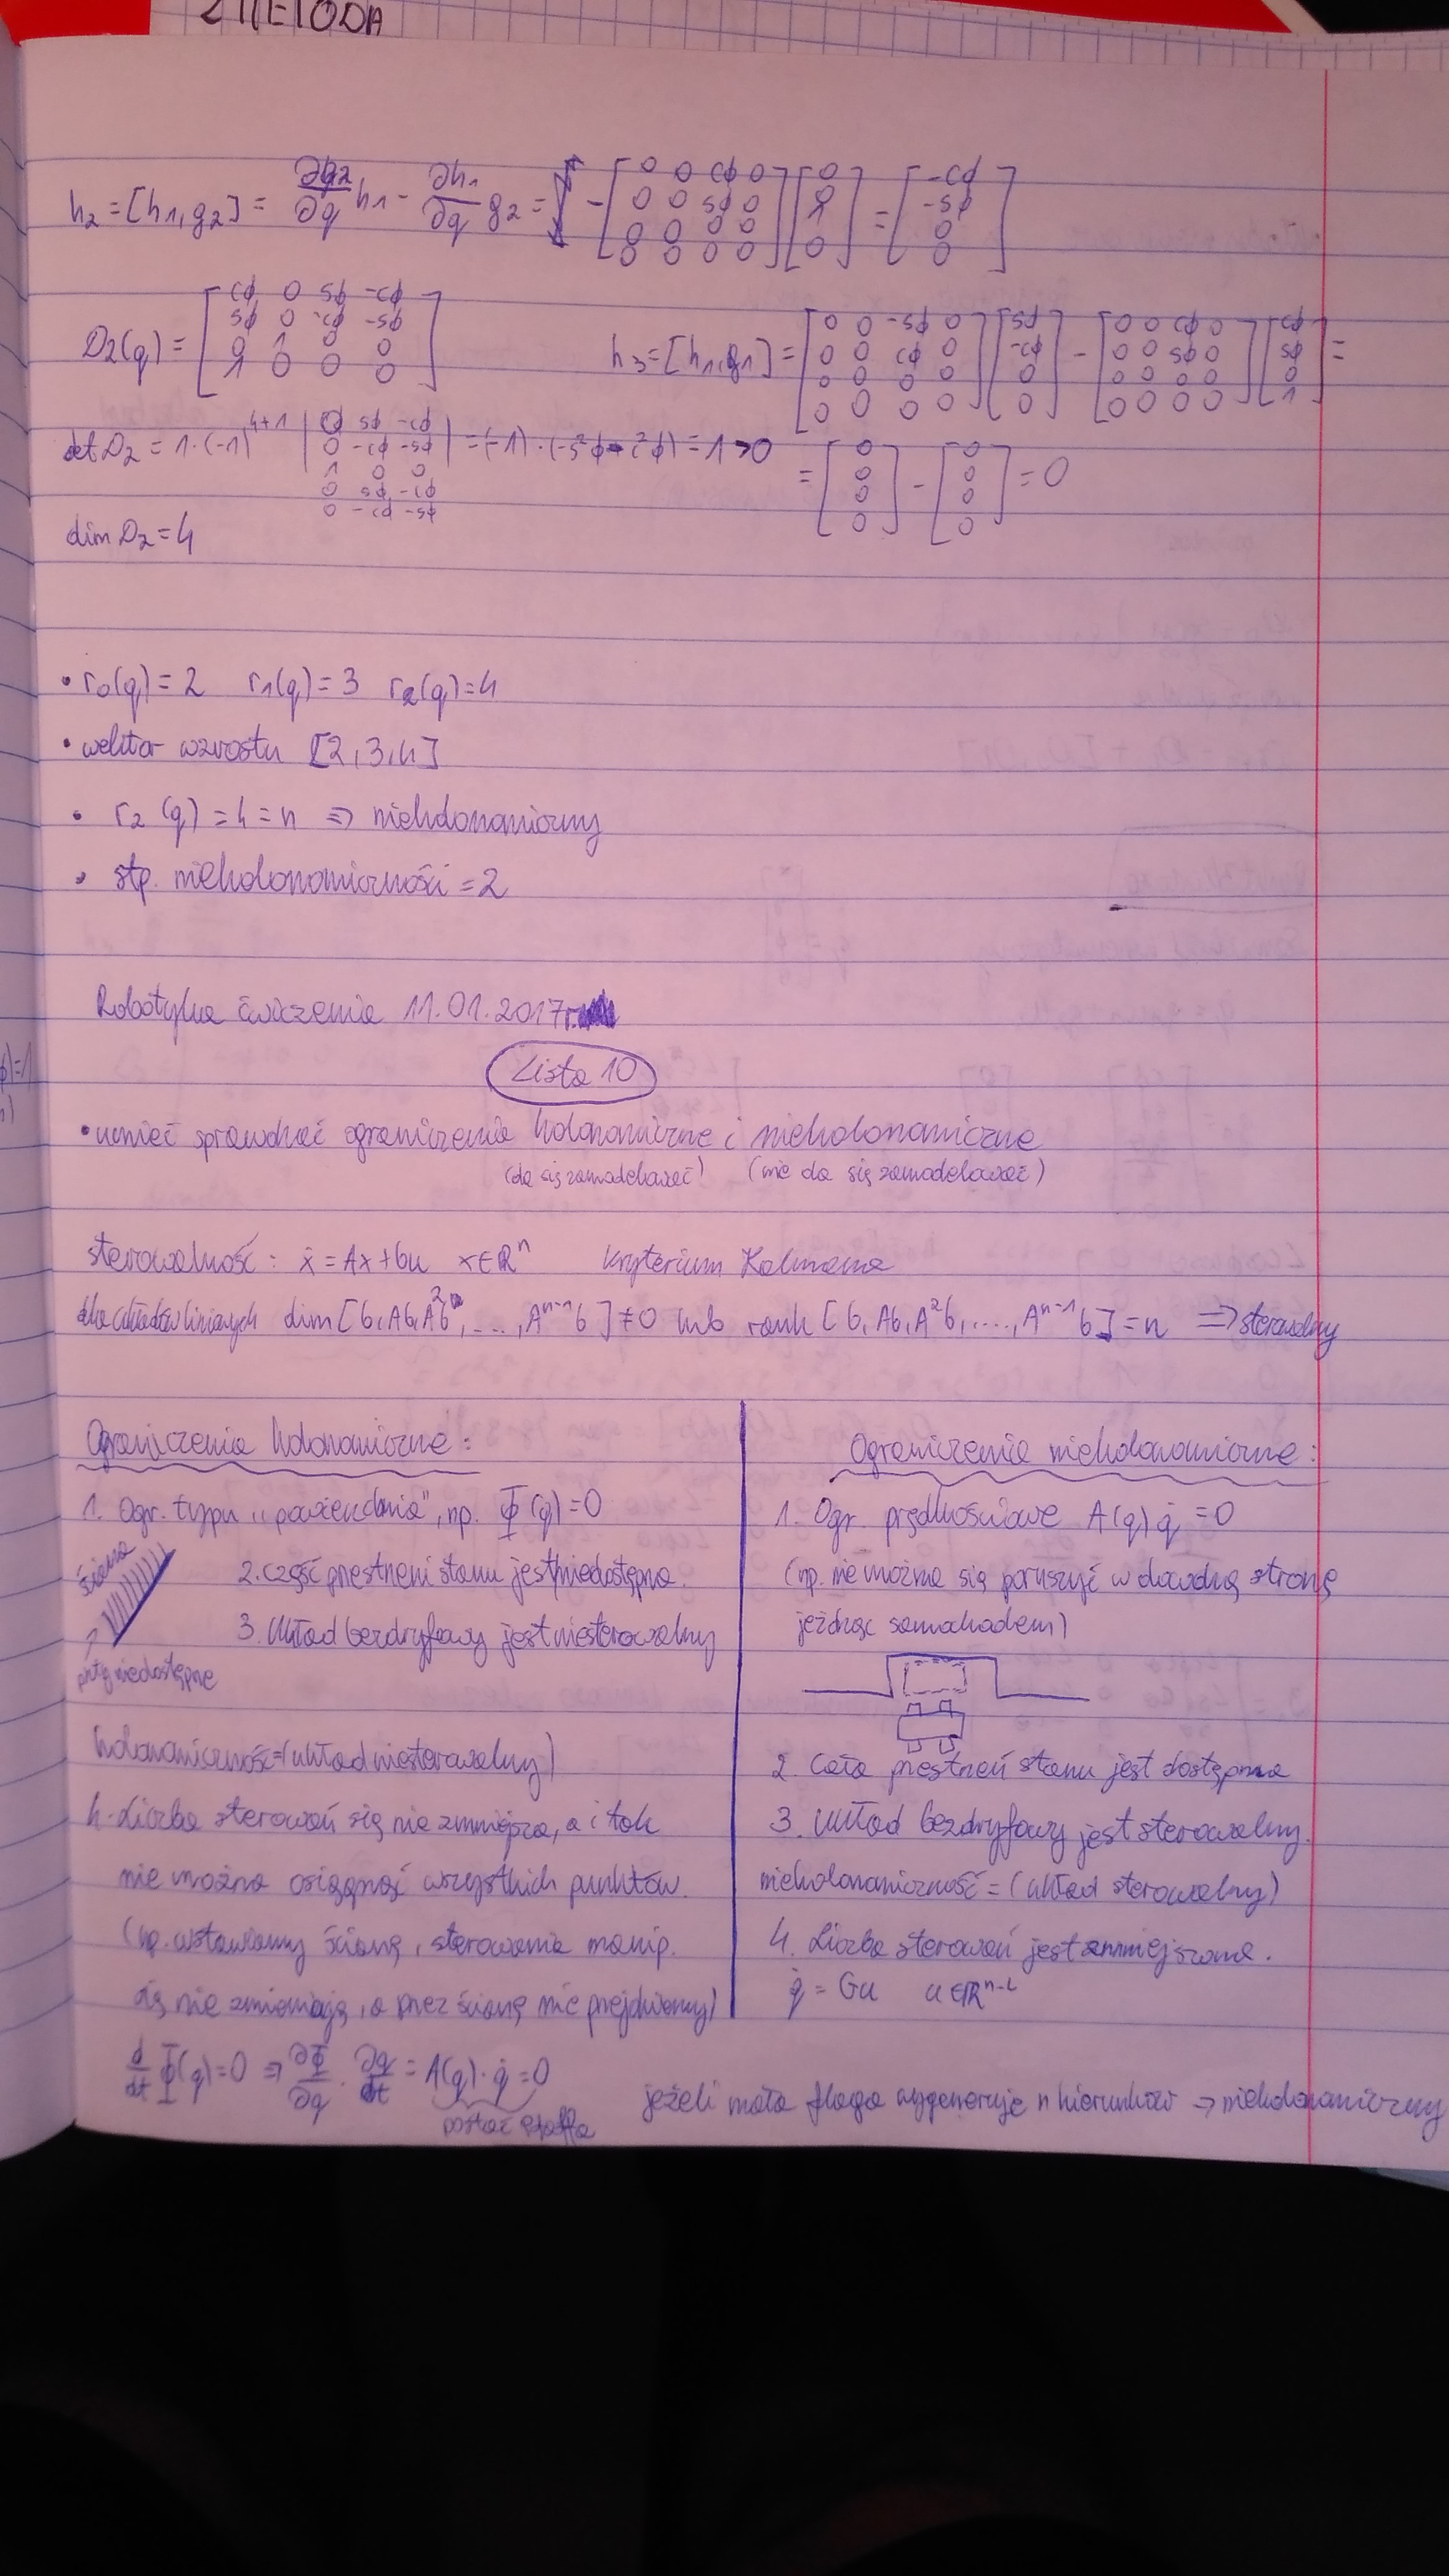 2 METODA
h₂ = [h₁, g₂] = ∂g₂/∂q h₁ - ∂h₁/∂q g₂ = - [0 0 cϕ 0; 0 0 sϕ 0; 0 0 0 0; 0 0 0 0] [0; 0; 1; 0] = [-cϕ; -sϕ; 0; 0]
D₂(q) = [cϕ 0 sϕ -cϕ; sϕ 0 -cϕ -sϕ; 0 1 0 0; 1 0 0 0]
h₃ = [h₁, g₁] = [0 0 -sϕ 0; 0 0 cϕ 0; 0 0 0 0; 0 0 0 0] [sϕ; -cϕ; 0; 0] - [0 0 cϕ 0; 0 0 sϕ 0; 0 0 0 0; 0 0 0 0] [cϕ; sϕ; 0; 1] =
= [0; 0; 0; 0] - [0; 0; 0; 0] = 0
det D₂ = 1·(-1)⁴⁺¹ |0 sϕ -cϕ; 0 -cϕ -sϕ; 1 0 0| = (-1)·(-s²ϕ-c²ϕ) = 1 > 0
0 sϕ -cϕ
0 -cϕ -sϕ
dim D₂ = 4
• r₀(q) = 2 r₁(q) = 3 r₂(q) = 4
• wektor wzrostu [2,3,4]
• r₂(q) = 4 = n ⇒ nieholonomiczny
• stp. nieholonomiczności = 2
Robotyka ćwiczenia 11.01.2017r.
Lista 10
• umieć sprawdzać ograniczenia holonomiczne i nieholonomiczne
(da się zamodelować) (nie da się zamodelować)
sterowalność: ẋ = Ax + bu x∈ℝⁿ kryterium Kalmana
dla układów liniowych dim [b, Ab, A²b, ..., Aⁿ⁻¹b] ≠ 0 lub rank [b, Ab, A²b, ...., Aⁿ⁻¹b] = n ⇒ sterowalny
Ograniczenia holonomiczne:
1. Ogr. typu „powierzchnia", np. Φ(q) = 0
ściana
2. część przestrzeni stanu jest niedostępna.
3. Układ bezdryfowy jest niesterowalny
pkty niedostępne
holonomiczność = (układ niesterowalny)
4. Liczba sterowań się nie zmniejsza, a i tak
nie można osiągnąć wszystkich punktów.
(np. wstawiamy ścianę, sterowania manip.
się nie zmieniają, a przez ścianę nie przejdziemy)
Ograniczenia nieholonomiczne:
1. Ogr. prędkościowe A(q) q̇ = 0
(np. nie można się poruszyć w dowolną stronę
jeżdżąc samochodem)
2. Cała przestrzeń stanu jest dostępna
3. Układ bezdryfowy jest sterowalny.
nieholonomiczność = (układ sterowalny)
4. Liczba sterowań jest zmniejszona.
q̇ = Gu u∈ℝⁿ⁻ˡ
d/dt Φ(q) = 0 ⇒ ∂Φ/∂q · ∂q/dt = A(q)·q̇ = 0
postać Pfaffa
jeżeli mała flaga wygeneruje n kierunków → nieholonomiczny